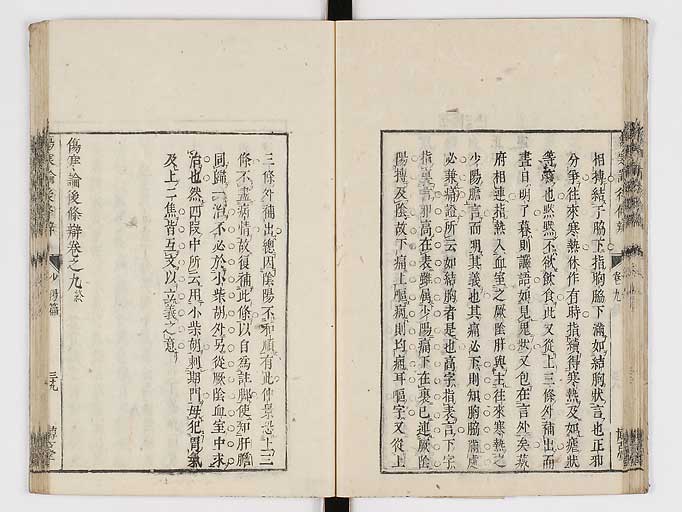 相搏結于脇下指胸脇下滿如結胸狀言也正邪
分爭往來寒熱休作有時指續得寒熱及如瘧狀
等義也然默不欲飲食此又從上三條外補出而
晝日明了暮則譫語如見鬼狀又包在言外矣蓋
府相連指熱入血室之厥陰肝與主往來寒熱之
少陽膽言而明其義也其痛必下則知胸脇滿處
必兼痛證所云如結胸者是也高字指表言下字
指裏言邪高在表雖屬少陽痛下在裏已連厥陰
陽搏及陰故下痛上嘔痛則均痛耳嘔字又從上
三條外補出總因陰陽不和順有此仲景恐上三
條不盡病情故復補此條以自為註脚使知肝膽
同歸一治不必於小柴胡外另從厥陰血室中求
治也然四段中所云用小柴胡刺期門毋犯胃氣
及上二焦皆互文以立義之意
傷寒論後條辯卷之九終
少陽篇
三九